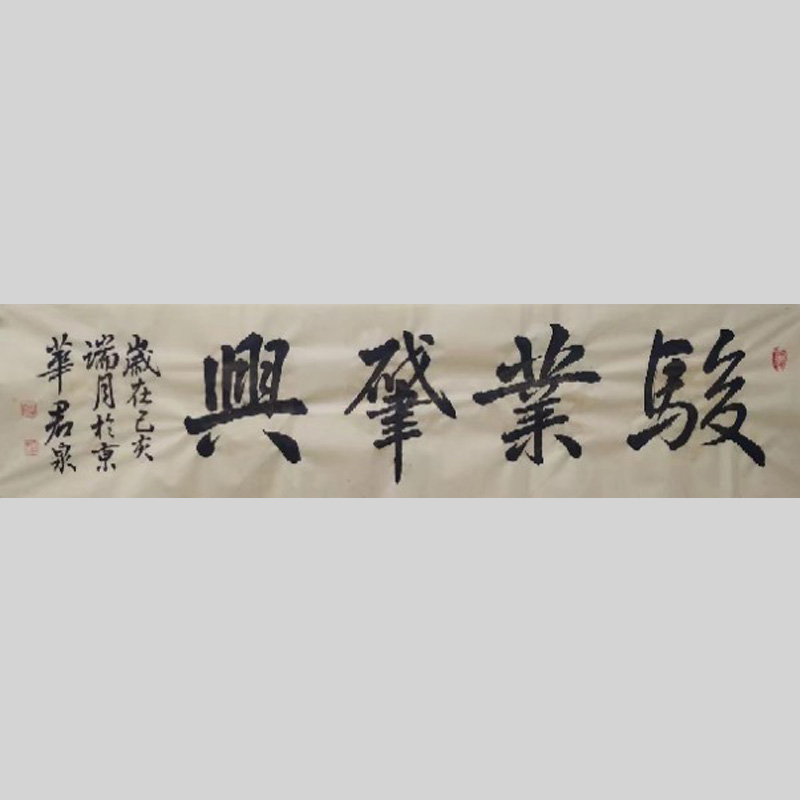 駿業肇興
歲在己亥
端月於京
華君泉